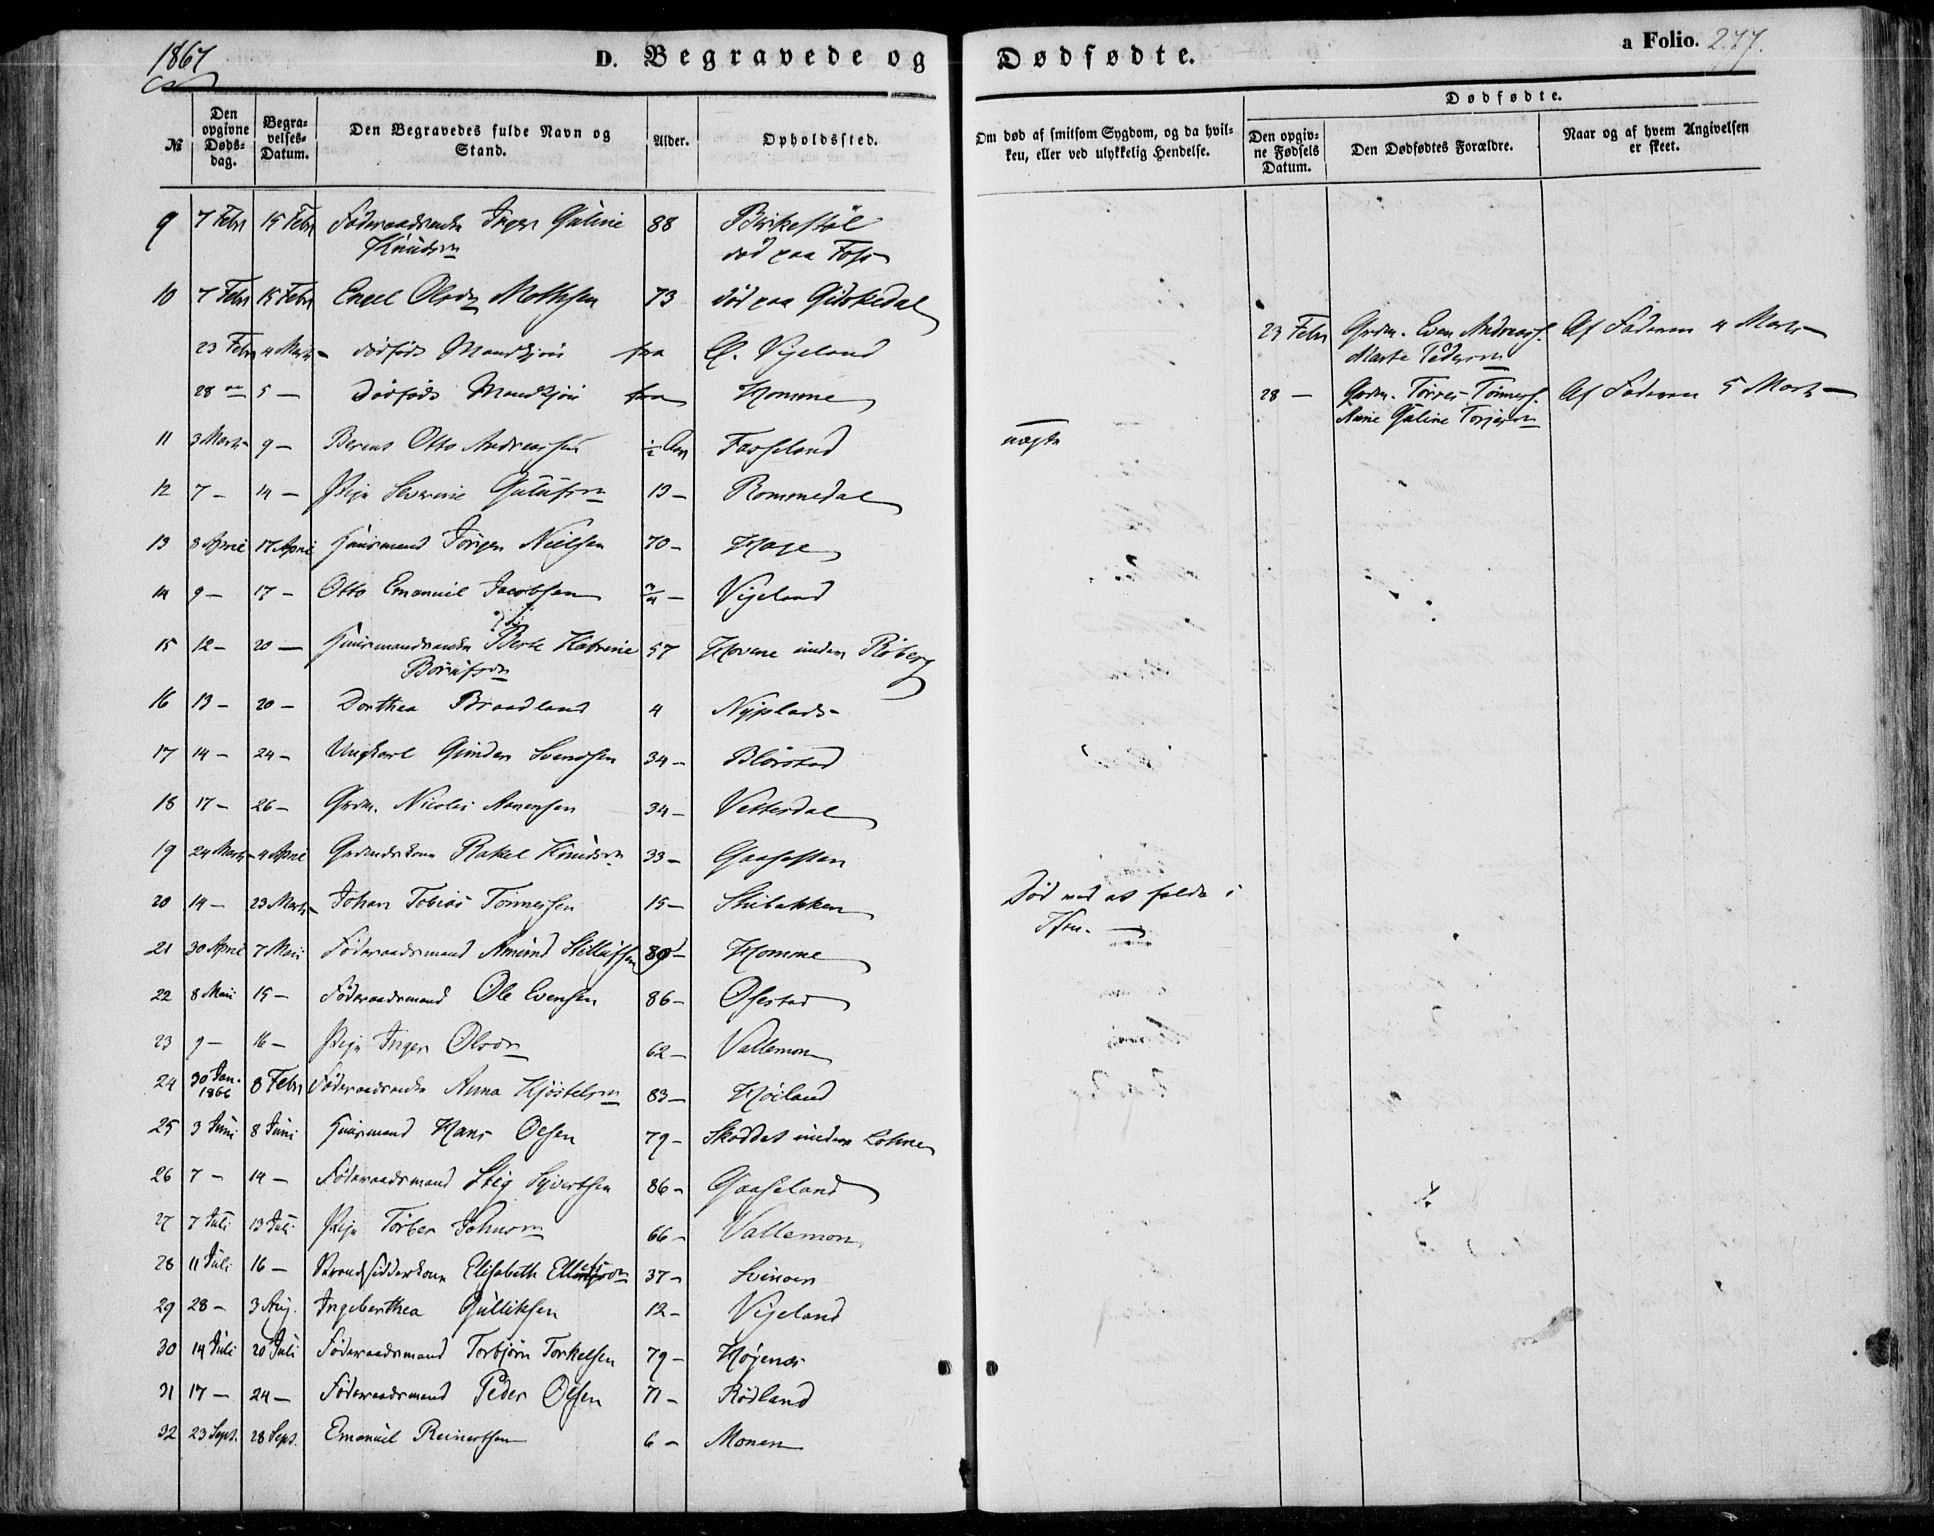 1867
D. Begravede og Dødfødte.
a Folio. 277.
№
Den opgivne Døds-dag.
Begra-velses-Datum.
Den Begravedes fulde Navn og Stand.
Alder.
Opholdssted.
Om død af smitsom Sygdom, og da hvil-ken, eller ved ulykkelig Hendelse.
Dødfødte.
Den opgiv-ne Fødsels Datum.
Den Dødfødtes Forældre.
Naar og af hvem Angivelsen er skeet.
9 7 Febr 15 Febr Føderaadsenke Inger Galine 88 Birkestøl
Knudsdr død paa Foss
10 7 Febr 15 Febr Engel Olsdr 73 død paa Gidskedal
23 Febr 4 Marts dødfødt Mandkjøn fra Ø. Vigeland 23 Febr Grdm. Even Andreass. Af Faderen 4 Marts
Marte Pedersdr
28 5 — Dødfødt Mandkjøn fra Homme 28 — Grdm. Torres Tønness. Af Faderen 5 Marts
Anne Galine Torjesdr
11 3 Marts 9 — Berent Otto Andreassen ½ Aar Fasseland uægte
12 7 — 14 — Pige Severine 13 — Rommedal
13 8 April 17 April Huusmand Jørgen Nielsen 70 — Hage
14 9 — 17 — Otto Emanuel Jacobsen ¾ — Vigeland
15 12 — 20 — Huusmandsenke Berte Katrine 57 Hovene under Røberg
16 13 — 20 — Dorthea Braadland 4 Nyplads
17 14 — 24 — Ungkarl Gunder Svendsen 34 — Blørstad
18 17 — 26 — Grdm. Nicolai Aanensen 34 — Vettesdal
19 24 Marts 4 April Grdmdskone Rakel Knudsdr 33 — Gaasesten
20 14 — 23 Marts Johan Tobias Tønnesen 15 — Stubakken Død ved at falde i
Isen.
21 30 April 7 Mai Føderaadsmand Amund 89 — Homme
22 8 Mai 15 — Føderaadsmand Ole Evensen 86 — Øfestad
23 9 — 16 — Pige Inger Olsdr 62 — Vallemon
24 30 Jan. 1866 8 Febr Føderaadsenke Anna Kjøstelsdr 83 — Høiland
25 3 Juni 8 Juni Huusmand Hans Olsen 79 — Skoddet under Lohne
26 7 — 14 — Føderaadsmand Stig Syvertsen 86 — Gaaseland
27 7 Juli 13 Juli Pige Torber Johnsdr 66 — Vallemon
28 11 Juli 16 — Strandsidderkone Elisabeth 37 — Svinøen
29 28 — 3 Aug. Ingeberthea Gulliksen 12 — Vigeland
30 14 Juli 20 Juli Føderaadsmand Torbjørn Torkelsen 79 — Høyenes
31 17 — 24 — Føderaadsmand Peder Olsen 71 — Rødland
32 23 Sept. 28 Sept. Emanuel Reinertsen 6 — Monen